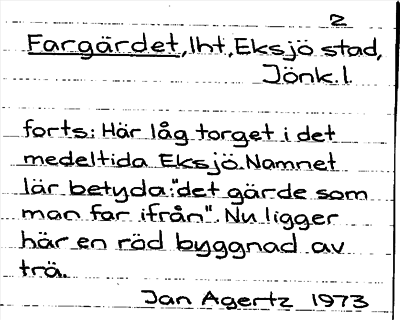 2
Fargärdet, lht, Eksjö stad,
Jönk. l.
forts: Här låg torget i det
medeltida Eksjö. Namnet
lär betyda: "det gärde som
man far ifrån". Nu ligger
här en röd byggnad av
trä.
Jan Agertz 1973